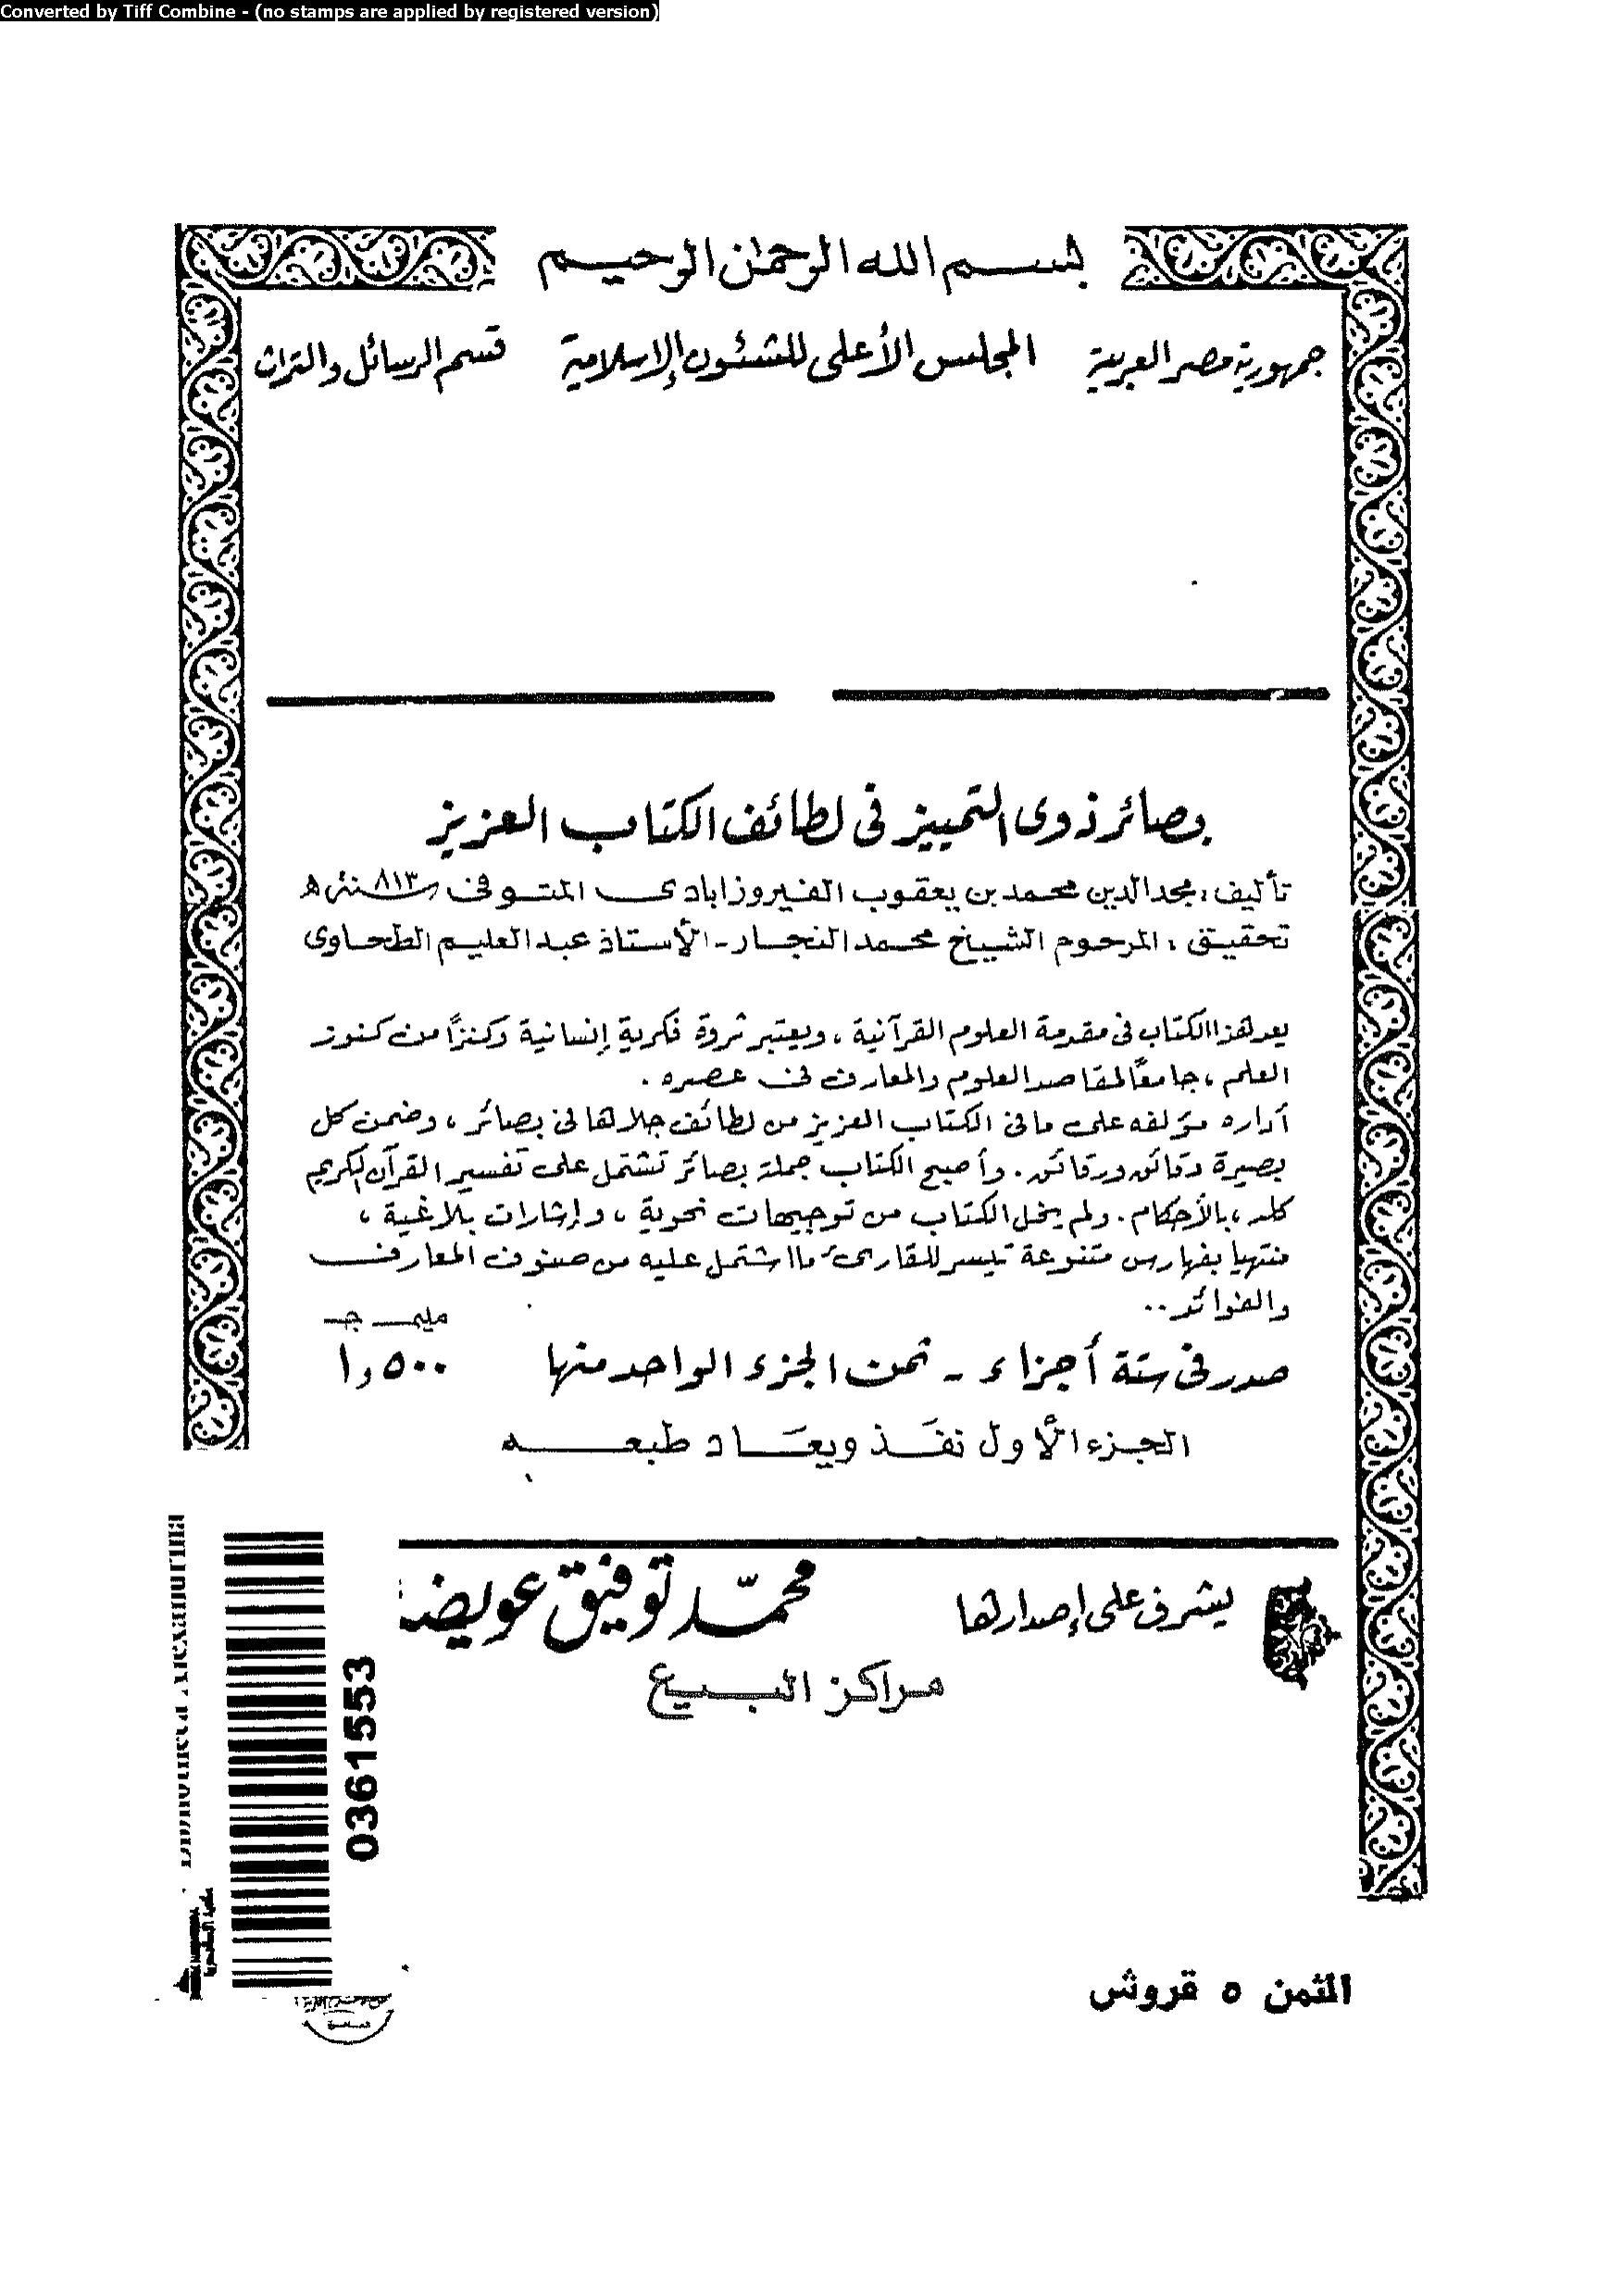 Converted by Tiff Combine - (no stamps are applied by registered version)
بسم الله الرحمن الرحيم
جمهورية مصر العربية المجلس الأعلى للشئون الإسلامية قسم الرسائل والتراث
بصائر ذوى التمييز فى لطائف الكتاب العزيز
تأليف : مجد الدين محمد بن يعقوب الفيروزابادى المتوفى سنة ٨١٣ هـ
تحقيق : المرحوم الشيخ محمد النجار - الأستاذ عبد العليم الطحاوى
يعد هذا الكتاب فى مقدمة العلوم القرآنية ، ويعتبر ثروة فكرية إنسانية وكنزًا من كنوز
العلم ، جامعًا لمقاصد العلوم والمعارف فى عصره .
أداره مؤلفه على ما فى الكتاب العزيز من لطائف جلاها فى بصائر ، وضمن كل
بصيرة دقائق ورقائق . وأصبح الكتاب جملة بصائر تشتمل على تفسير القرآن الكريم
كله ، بالأحكام . ولم يخل الكتاب من توجيهات نحوية ، وإشارات بلاغية ،
منتهيا بفهارس متنوعة تيسر للقارئ ما اشتمل عليه من صنوف المعارف
والفوائد ..
مليم جـ
صدر فى ستة أجزاء - ثمن الجزء الواحد منها ٥٠٠ر١
الجزء الأول نفَذ ويعَاد طبعه
يشرف على إصدارها محمّد توفيق عويضة
مراكز البيع
0361553
الثمن ٥ قروش